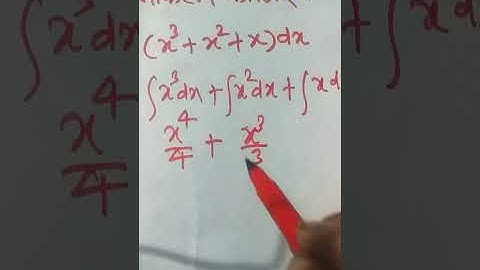 (x³+x²+x)dx
∫x³dx+∫x²dx+∫xd
x⁴/4 + x³/3